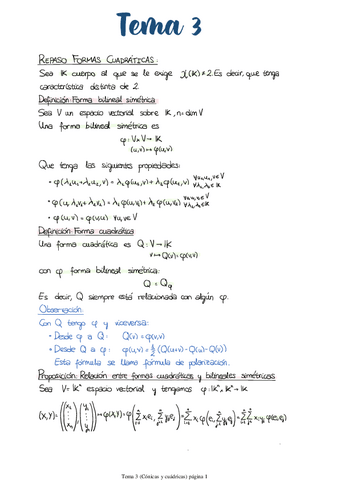 Tema 3
REPASO FORMAS CUADRÁTICAS:
Sea K cuerpo al que se le exige χ(K)≠2. Es decir, que tenga
característica distinta de 2.
Definición: Forma bilineal simétrica:
Sea V un espacio vectorial sobre K, n=dim V
Una forma bilineal simétrica es
φ: V×V→K
(u,v)↦φ(u,v)
Que tenga las siguientes propiedades:
• φ(λ₁u₁+λ₂u₂,v) = λ₁φ(u₁,v)+λ₂φ(u₂,v) ∀u₁,u₂,v∈V ∀λ₁,λ₂∈K
• φ(u,λ₁v₁+λ₂v₂) = λ₁φ(u,v₁)+λ₂φ(u,v₂) ∀u,v₁,v₂∈V ∀λ₁,λ₂∈K
• φ(u,v) = φ(v,u) ∀u,v∈V
Definición: Forma cuadrática
Una forma cuadrática es Q: V→K
v↦Q(v)=φ(v,v)
con φ forma bilineal simétrica:
Q = Qφ
Es decir, Q siempre está relacionada con algún φ.
Observación:
Con Q tengo φ y viceversa:
• Desde φ a Q: Q(v) = φ(v,v)
• Desde Q a φ: φ(u,v) = ½ (Q(u+v)-Q(u)-Q(v))
Esta fórmula se llama fórmula de polarización.
Proposición: Relación entre formas cuadráticas y bilineales simétricas
Sea V=Kⁿ espacio vectorial y tengamos φ: Kⁿ×Kⁿ→K
Tema 3 (Cónicas y cuádricas) página 1